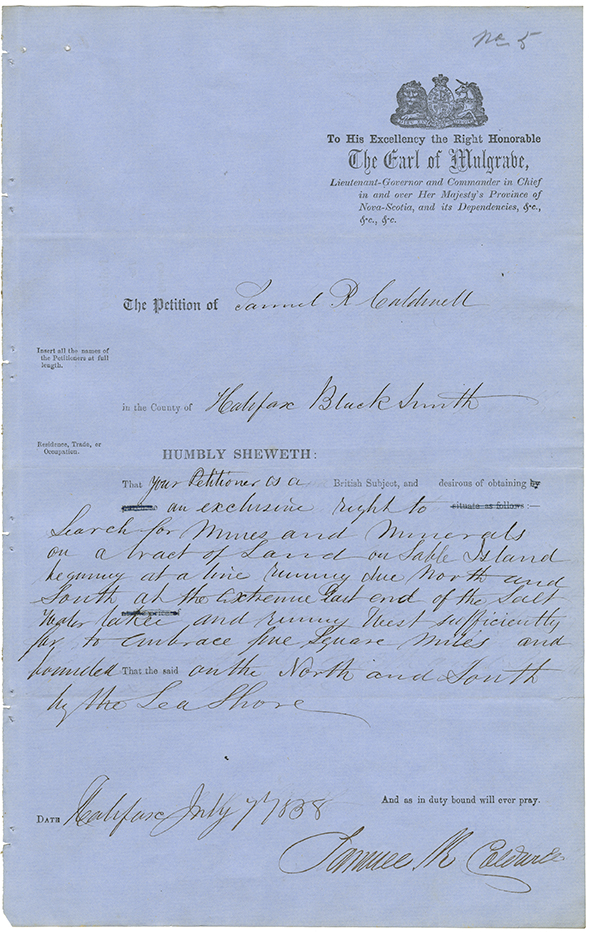 No 5
To His Excellency the Right Honorable
The Earl of Mulgrave,
Lieutenant-Governor and Commander in Chief
in and over Her Majesty's Province of
Nova-Scotia, and its Dependencies, &c.,
&c., &c.
The Petition of Samuel R Caldwell
Insert all the names of
the Petitioners at full
length.
in the County of Halifax Black Smith
Residence, Trade, or
Occupation.
HUMBLY SHEWETH:
That your Petitioner is a British Subject, and desirous of obtaining by
an exclusive right to situate as follows:—
Search for Mines and Minerals
on a tract of Land on Sable Island
begining at a line runing due North and
South at the extreme East end of the Salt
Water Lake and runing West sufficiently
far to embrace five Square Miles and
bounded That the said on the North and South
by the Sea Shore
And as in duty bound will ever pray.
DATE Halifax July 7 1858
Samuel R Caldwell